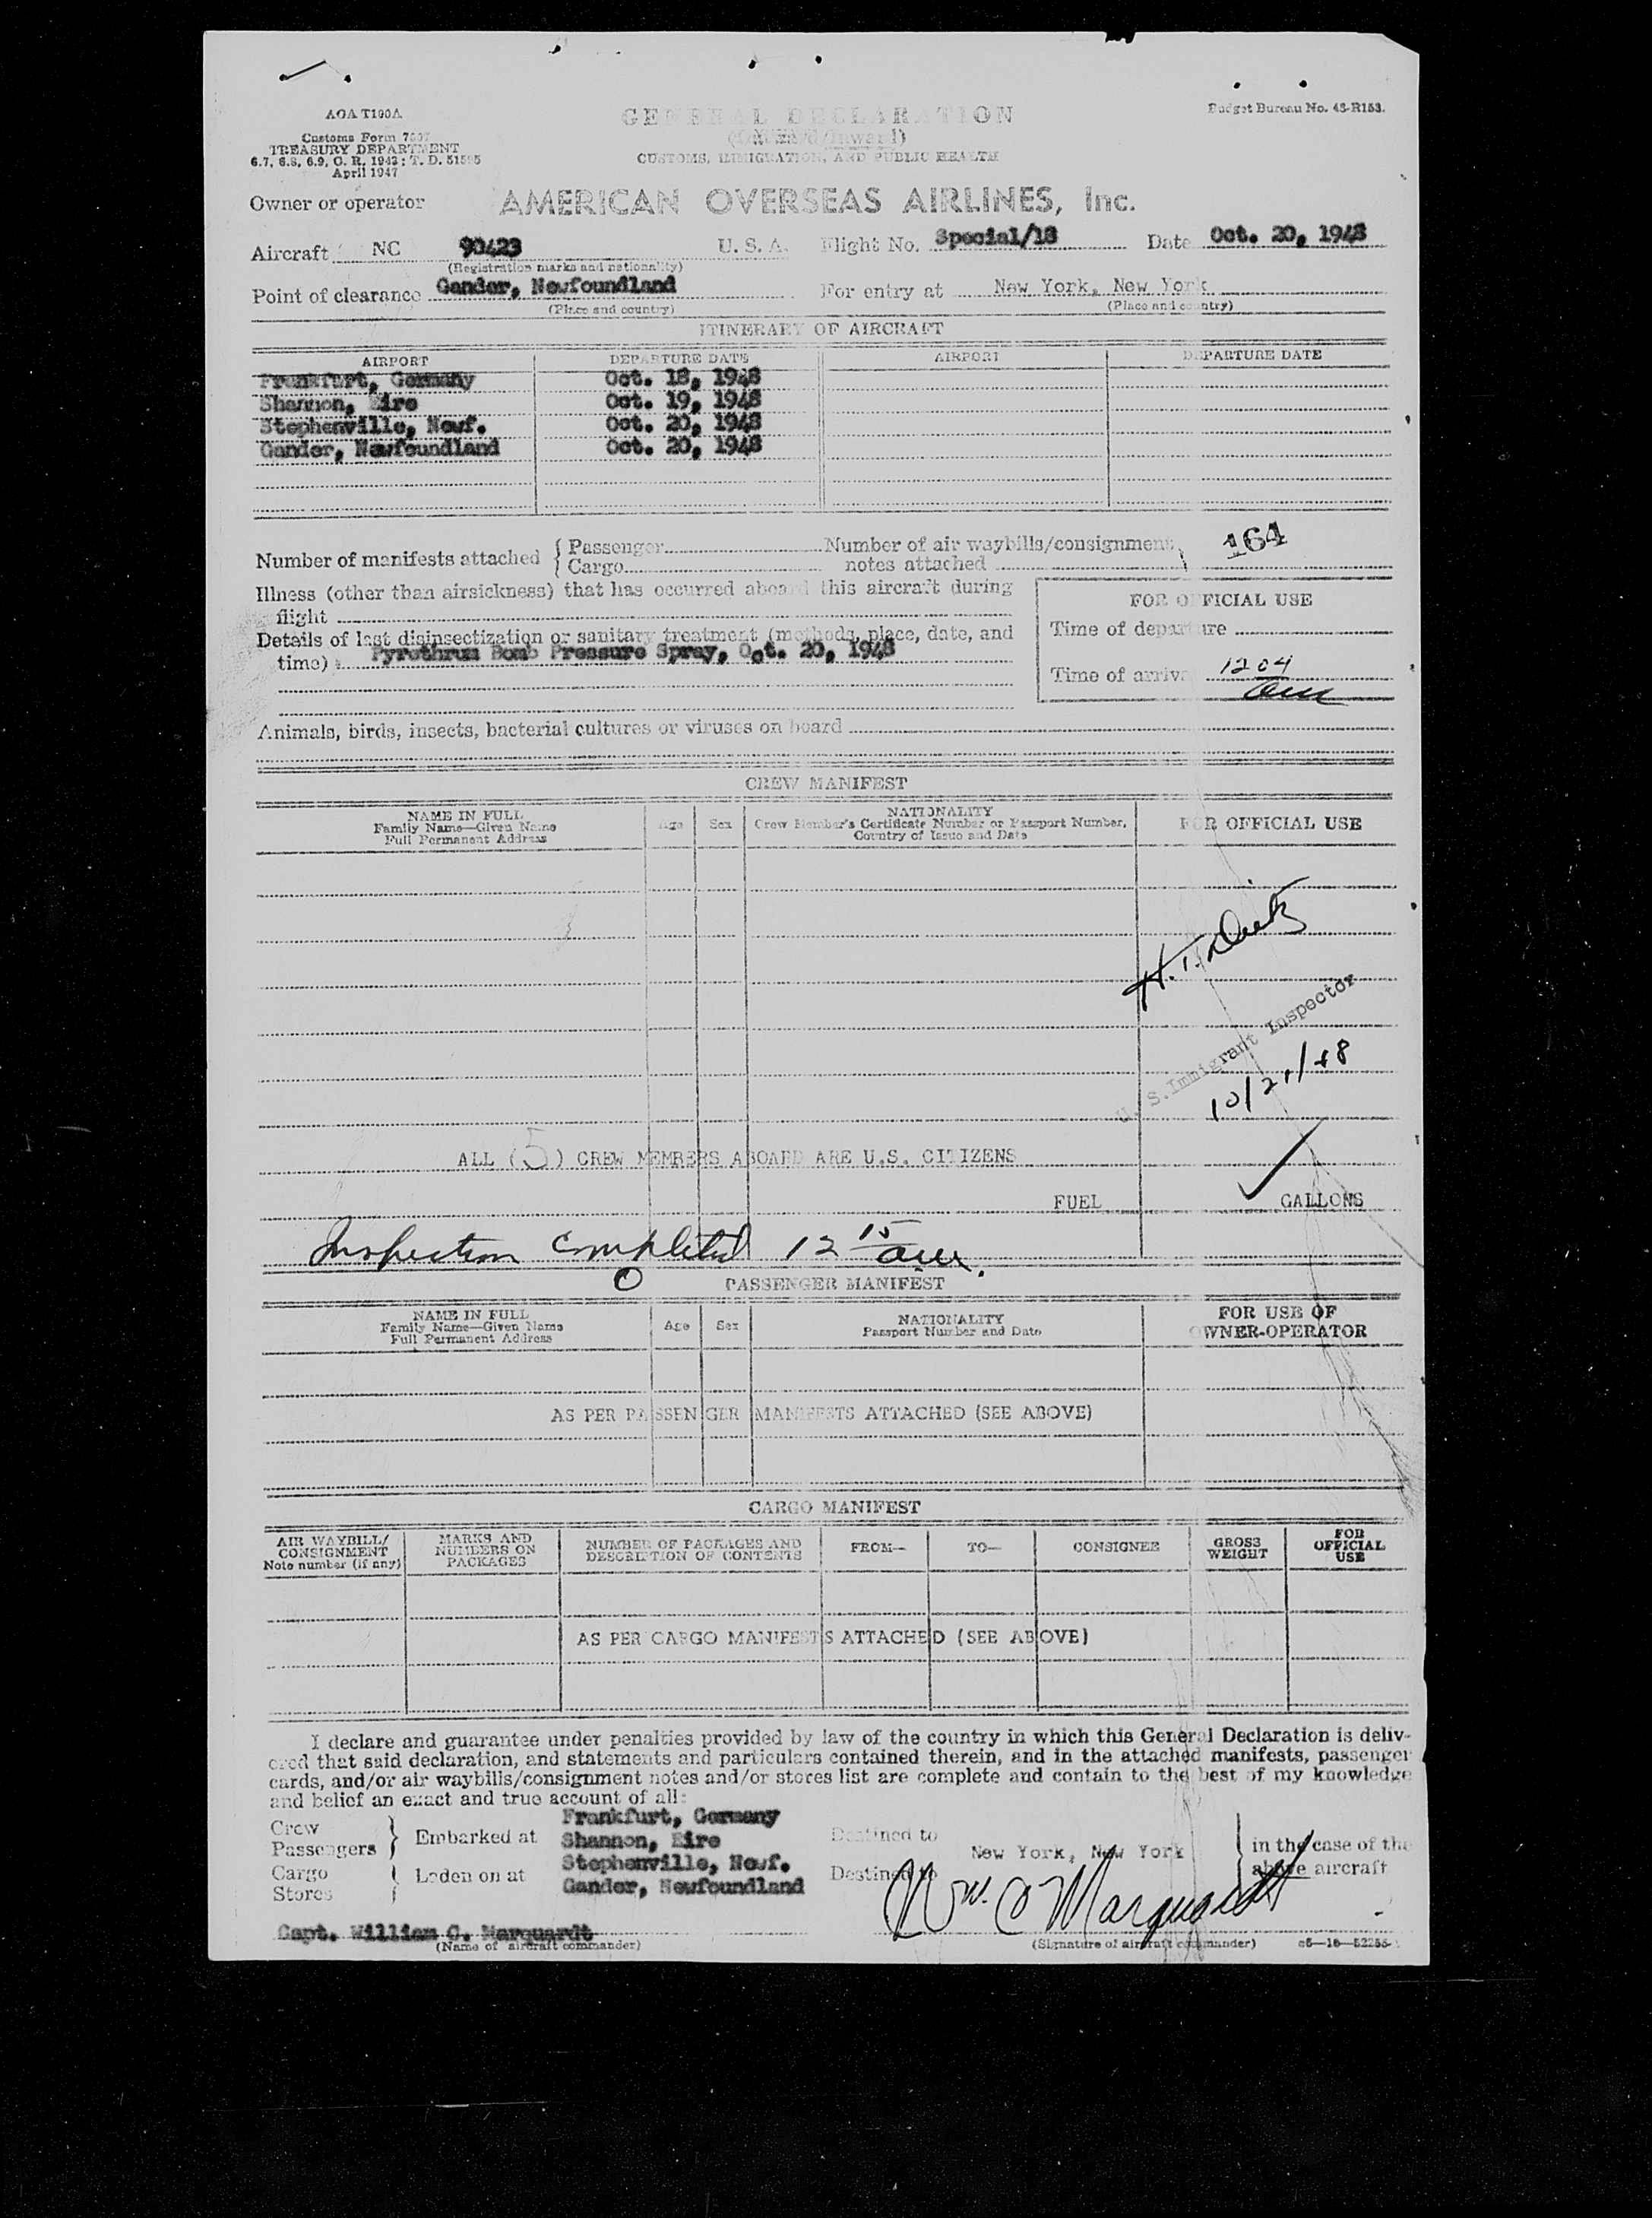 AOA T100A
Customs Form 7507
TREASURY DEPARTMENT
6.7, 6.8, 6.9, C. R. 1943; T. D. 51595
April 1947
GENERAL DECLARATION
(Outward/Inward)
CUSTOMS, IMMIGRATION, AND PUBLIC HEALTH
Budget Bureau No. 43-R153.
Owner or operator AMERICAN OVERSEAS AIRLINES, Inc.
Aircraft NC 90423 U. S. A. Flight No. Special/18 Date Oct. 20, 1948
(Registration marks and nationality)
Point of clearance Gander, Newfoundland For entry at New York, New York
(Place and country) (Place and country)
ITINERARY OF AIRCRAFT
AIRPORT DEPARTURE DATE AIRPORT DEPARTURE DATE
Frankfurt, Germany Oct. 18, 1948
Shannon, Eire Oct. 19, 1948
Stephenville, Newf. Oct. 20, 1948
Gander, Newfoundland Oct. 20, 1948
Number of manifests attached { Passenger Number of air waybills/consignment 164
Cargo notes attached
Illness (other than airsickness) that has occurred aboard this aircraft during
flight
FOR OFFICIAL USE
Time of departure
Details of last disinsectization or sanitary treatment (methods, place, date, and
time) Pyrethrum Bomb Pressure Spray, Oct. 20, 1948
Time of arrival 12 04 am
Animals, birds, insects, bacterial cultures or viruses on board
CREW MANIFEST
NAME IN FULL
Family Name—Given Name
Full Permanent Address
Age Sex
NATIONALITY
Crew Member's Certificate Number or Passport Number,
Country of Issue and Date
FOR OFFICIAL USE
U. S. Immigrant Inspector
ALL (5) CREW MEMBERS ABOARD ARE U.S. CITIZENS
FUEL GALLONS
Inspection Completed 12 15 am.
O
PASSENGER MANIFEST
NAME IN FULL
Family Name—Given Name
Full Permanent Address
Age Sex
NATIONALITY
Passport Number and Date
FOR USE OF
OWNER-OPERATOR
AS PER PASSENGER MANIFESTS ATTACHED (SEE ABOVE)
CARGO MANIFEST
AIR WAYBILL/
CONSIGNMENT
Note number (if any)
MARKS AND
NUMBERS ON
PACKAGES
NUMBER OF PACKAGES AND
DESCRIPTION OF CONTENTS
FROM— TO— CONSIGNEE
GROSS
WEIGHT
FOR
OFFICIAL
USE
AS PER CARGO MANIFESTS ATTACHED (SEE ABOVE)
I declare and guarantee under penalties provided by law of the country in which this General Declaration is deliv-
ered that said declaration, and statements and particulars contained therein, and in the attached manifests, passenger
cards, and/or air waybills/consignment notes and/or stores list are complete and contain to the best of my knowledge
and belief an exact and true account of all:
Crew
Passengers } Embarked at
Cargo
Stores } Laden on at
Frankfurt, Germany
Shannon, Eire
Stephenville, Newf.
Gander, Newfoundland
Destined to
Destined to
New York, New York
in the case of the
above aircraft
Capt. William C. Marquardt
(Name of aircraft commander)
Wm. C Marquardt
(Signature of aircraft commander)